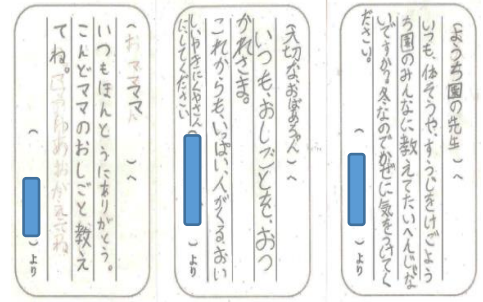 （ようち園の先生）へ
いつも、体そうや、すうじをけごよう
ち園のみんなに教えてたいへんじゃな
いですか？冬なのでかぜに気をつけてく
ださい。
（　）より
（大切なおばあちゃん）へ
いつも、おしごとを、おつ
かれさま。
これからも、いっぱい、人がくる、おい
しいやきにくやさん
にしてください
（　）より
（ママ）へ
いつもほんとうにありがとう。
こんどママのおしごと教え
てね。
（　）より